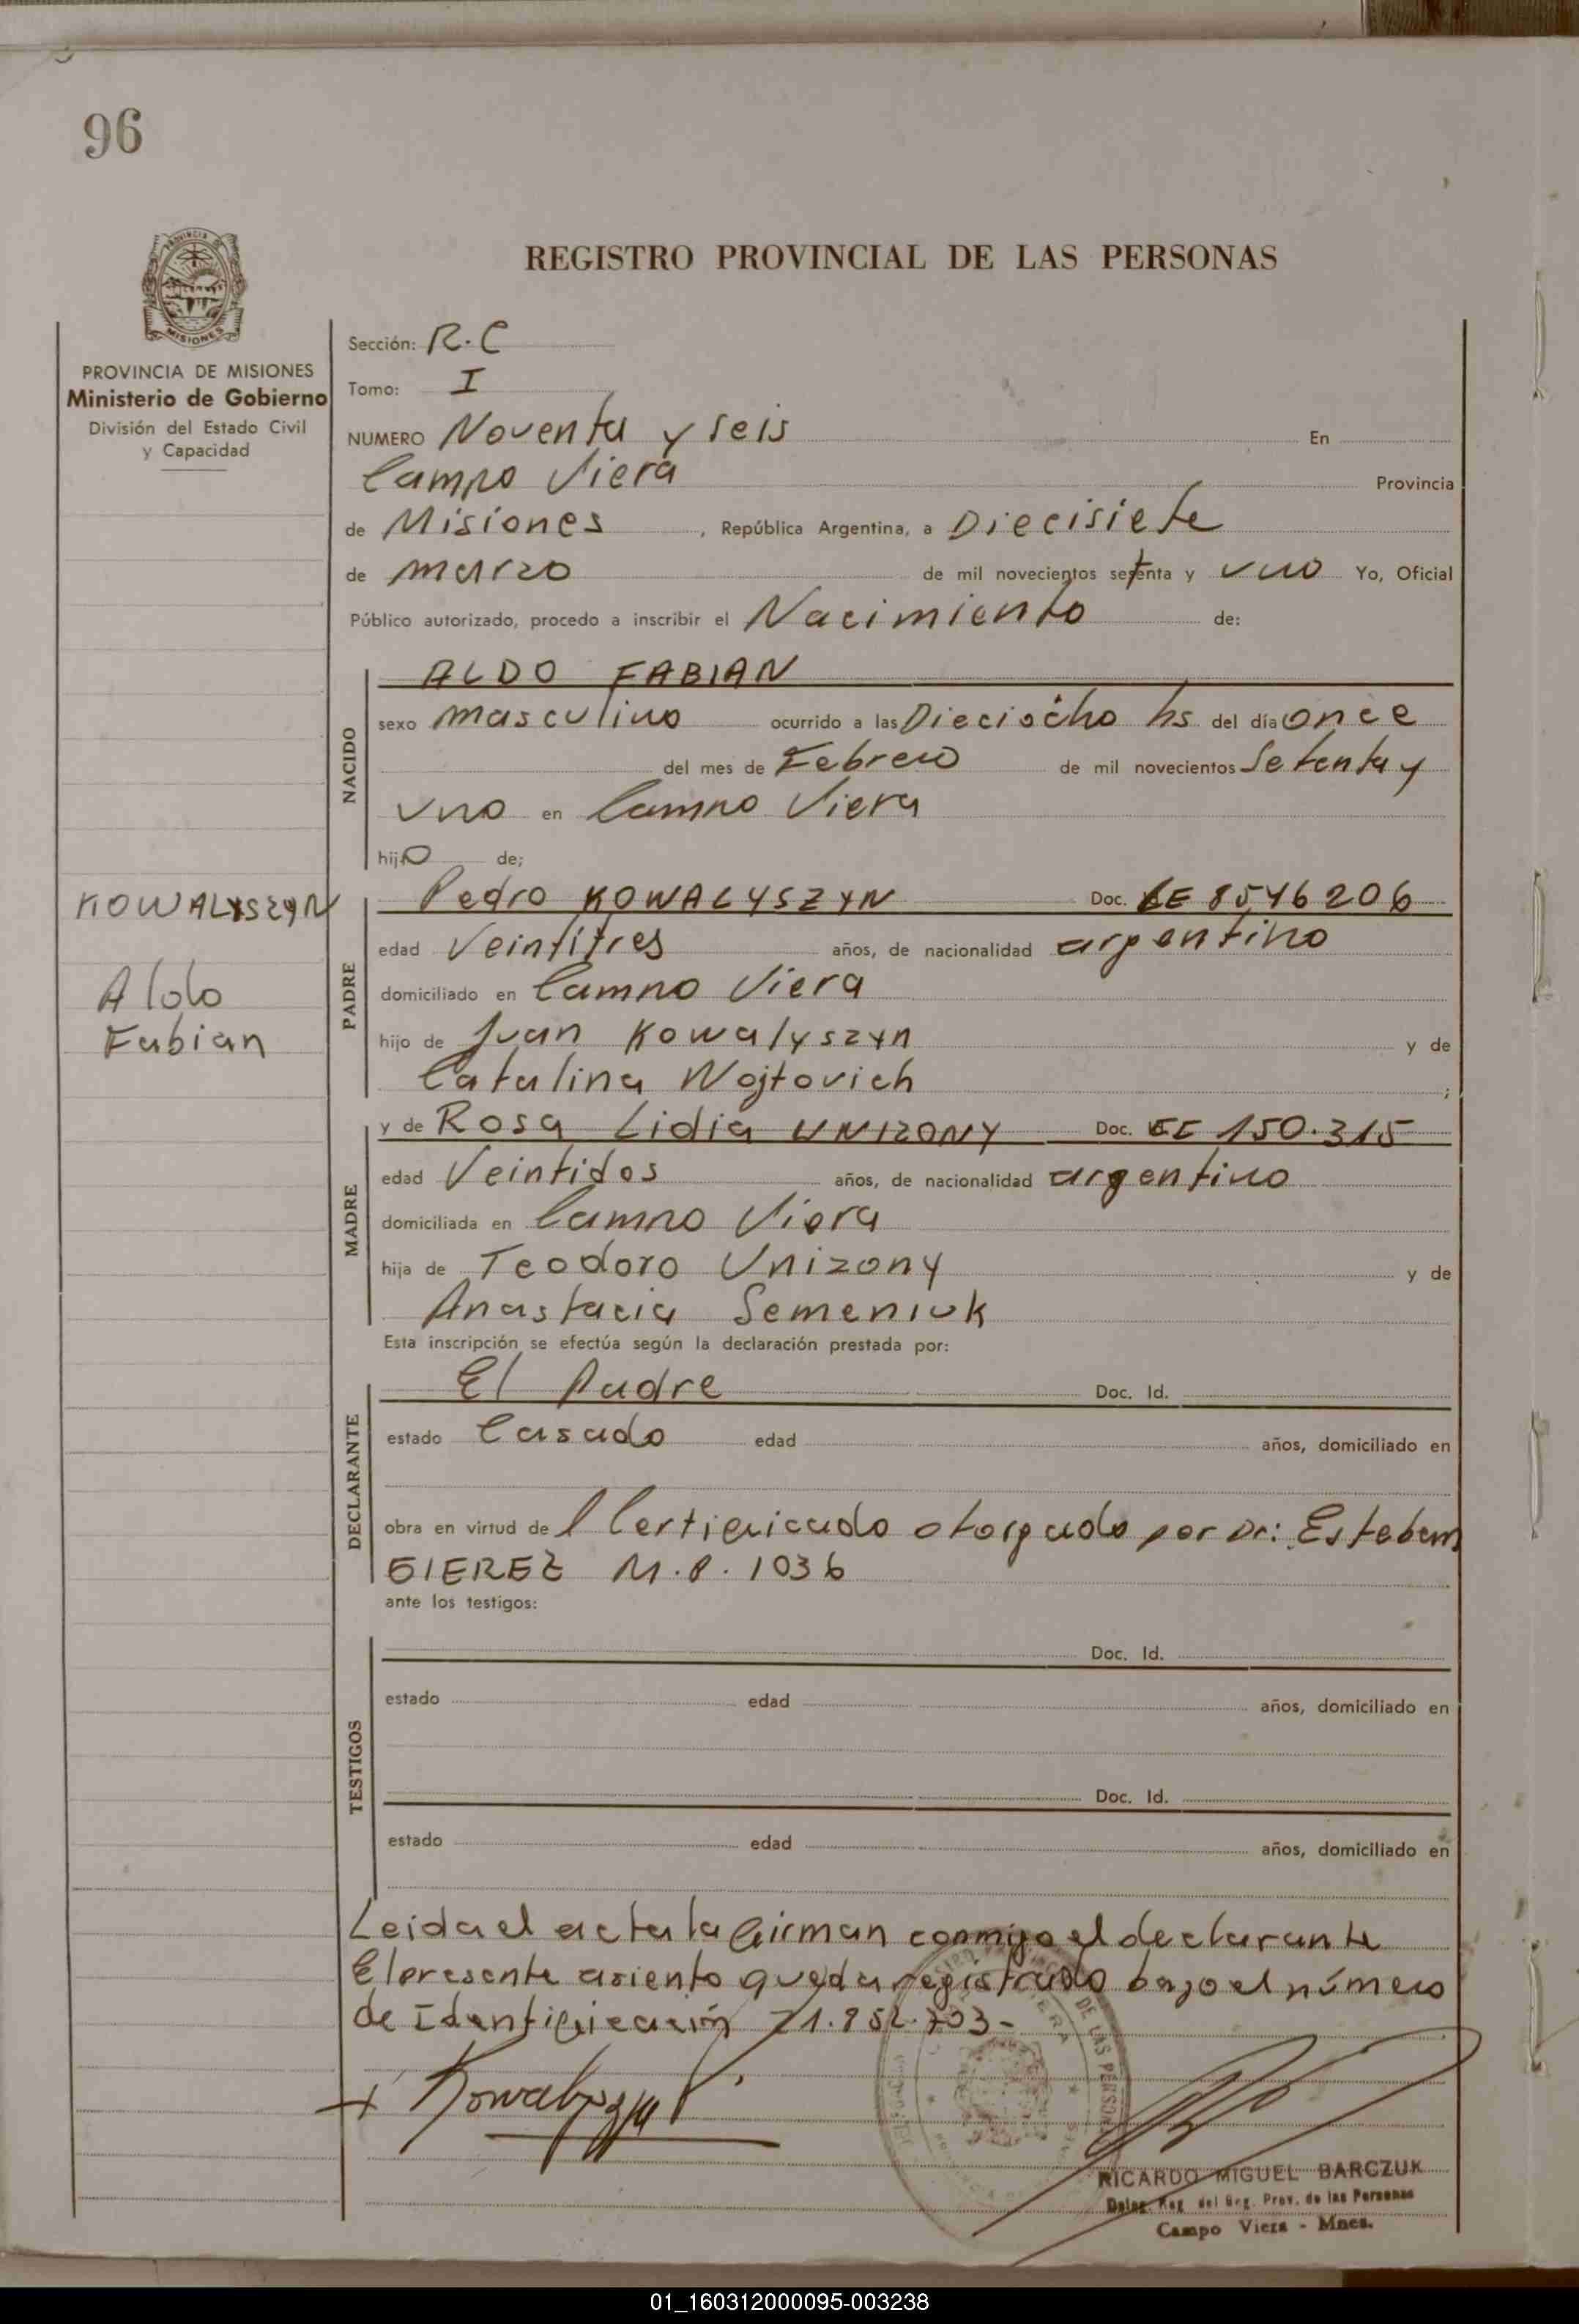 96
PROVINCIA DE
MISIONES
REGISTRO PROVINCIAL DE LAS PERSONAS
PROVINCIA DE MISIONES
Ministerio de Gobierno
División del Estado Civil
y Capacidad
Sección: R.C
Tomo: I
NUMERO Noventa y seis En
Campo Viera Provincia
de Misiones, República Argentina, a Diecisiete
de marzo de mil novecientos setenta y uno Yo, Oficial
Público autorizado, procedo a inscribir el Nacimiento de:
NACIDO
ALDO FABIAN
sexo masculino ocurrido a las Dieciocho hs del día once
del mes de Febrero de mil novecientos Setenta y
uno en Campo Viera
hijo de;
KOWALYSZYN
Aldo
Fabian
PADRE
Pedro KOWALYSZYN Doc. LE 8546206
edad Veintitres años, de nacionalidad argentino
domiciliado en Campo Viera
hijo de Juan Kowalyszyn y de
Catalina Wojtovich ;
MADRE
y de Rosa Lidia UNIZONY Doc. 150.315
edad Veintidos años, de nacionalidad argentino
domiciliada en Campo Viera
hija de Teodoro Unizony y de
Anastacia Semeniuk
Esta inscripción se efectúa según la declaración prestada por:
DECLARANTE
El Padre Doc. Id.
estado Casado edad años, domiciliado en
obra en virtud del Certificado otorgado por Dr: Esteban
M.P. 1036
ante los testigos:
TESTIGOS
Doc. Id.
estado edad años, domiciliado en
Doc. Id.
estado edad años, domiciliado en
Leida el acta la firman conmigo el declarante
El presente asiento queda registrado bajo el número
de Identificación 21.852.703-
RICARDO MIGUEL BARCZUK
Deleg. Reg. del Prov. de las Personas
Campo Viera - Mnes.
01_160312000095-003238